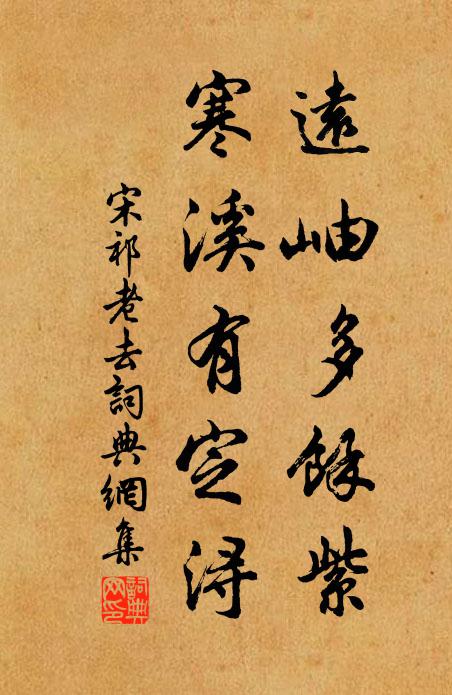 遠岫多餘紫
寒溪有定浔
宋祁老去詞典網集
詞典
网印